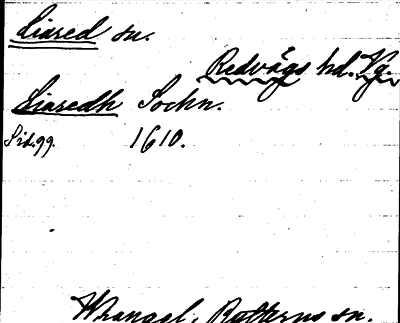 Liared sn.
Redvägs hd. Vg.
Liaredh Sochn.
1610.
Wrangel, Ratterns sn.